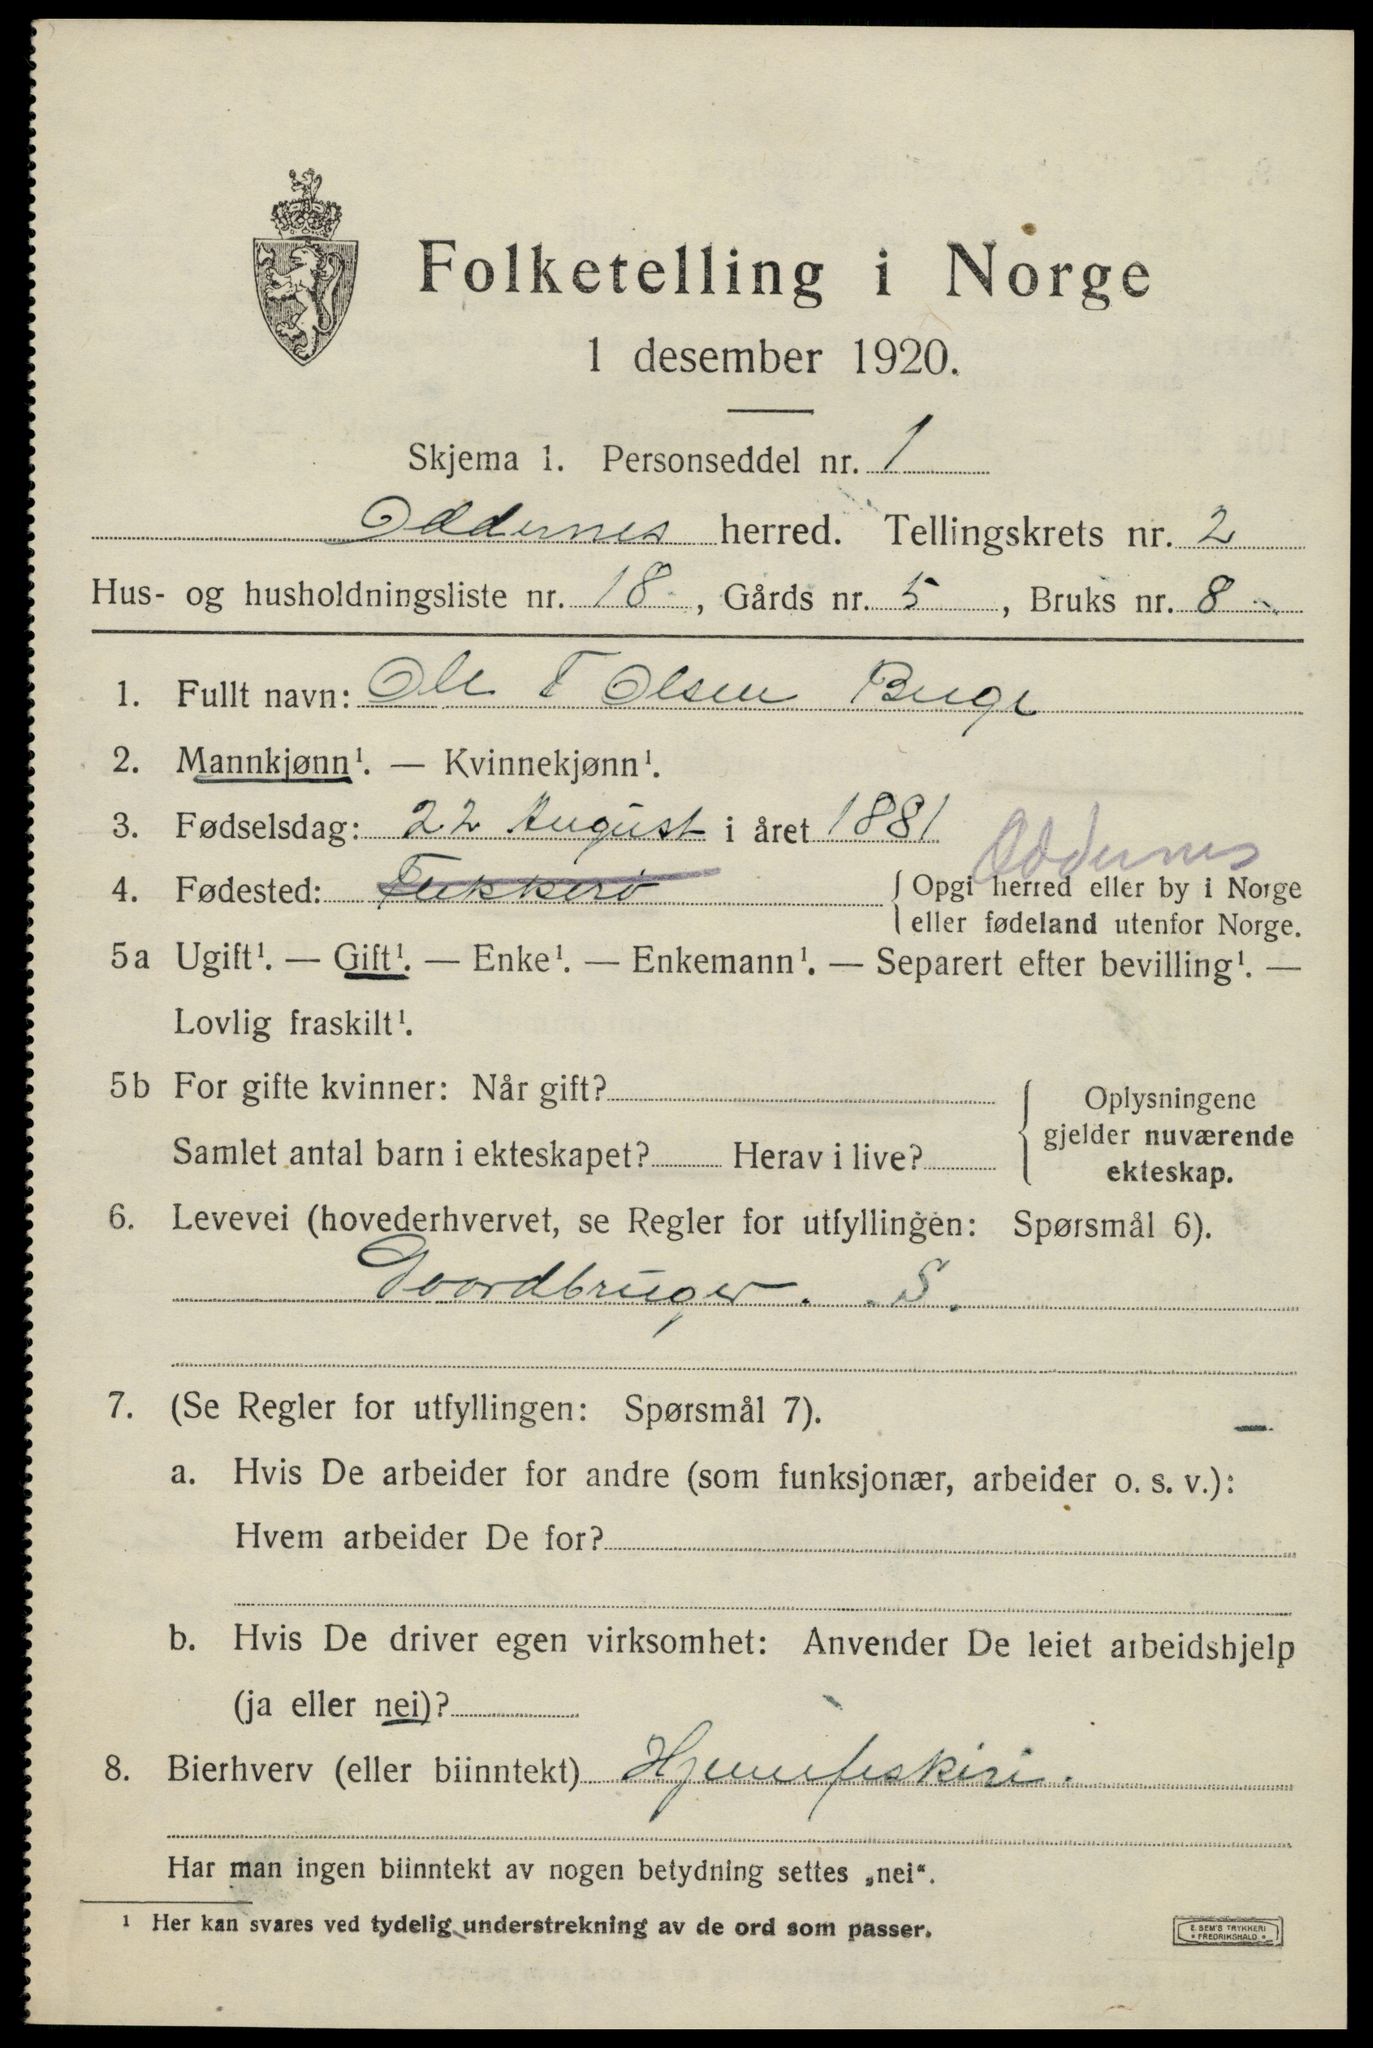 Folketelling i Norge
1 desember 1920.
Skjema 1. Personseddel nr. 1
Oddernes herred. Tellingskrets nr. 2
Hus- og husholdningsliste nr. 18, Gårds nr. 5, Bruks nr. 8
1. Fullt navn: Ole T Olsen Berge
2. Mannkjønn¹. — Kvinnekjønn¹.
3. Fødselsdag: 22 August i året 1881
Oddernes
4. Fødested: Flekkerø { Opgi herred eller by i Norge
eller fødeland utenfor Norge.
5a Ugift¹. — Gift¹. — Enke¹. — Enkemann¹. — Separert efter bevilling¹. —
Lovlig fraskilt¹.
5b For gifte kvinner: Når gift? { Oplysningene
gjelder nuværende
Samlet antal barn i ekteskapet? Herav i live? ekteskap.
6. Levevei (hovederhvervet, se Regler for utfyllingen: Spørsmål 6).
Goordbruger. . S.
7. (Se Regler for utfyllingen: Spørsmål 7). —
a. Hvis De arbeider for andre (som funksjonær, arbeider o. s. v.):
Hvem arbeider De for?
b. Hvis De driver egen virksomhet: Anvender De leiet arbeidshjelp
(ja eller nei)?
8. Bierhverv (eller biinntekt) Hjemefiskeri.
Har man ingen biinntekt av nogen betydning settes „nei“.
¹ Her kan svares ved tydelig understrekning av de ord som passer.
E. SEM'S TRYKKERI
* FREDRIKSHALD *